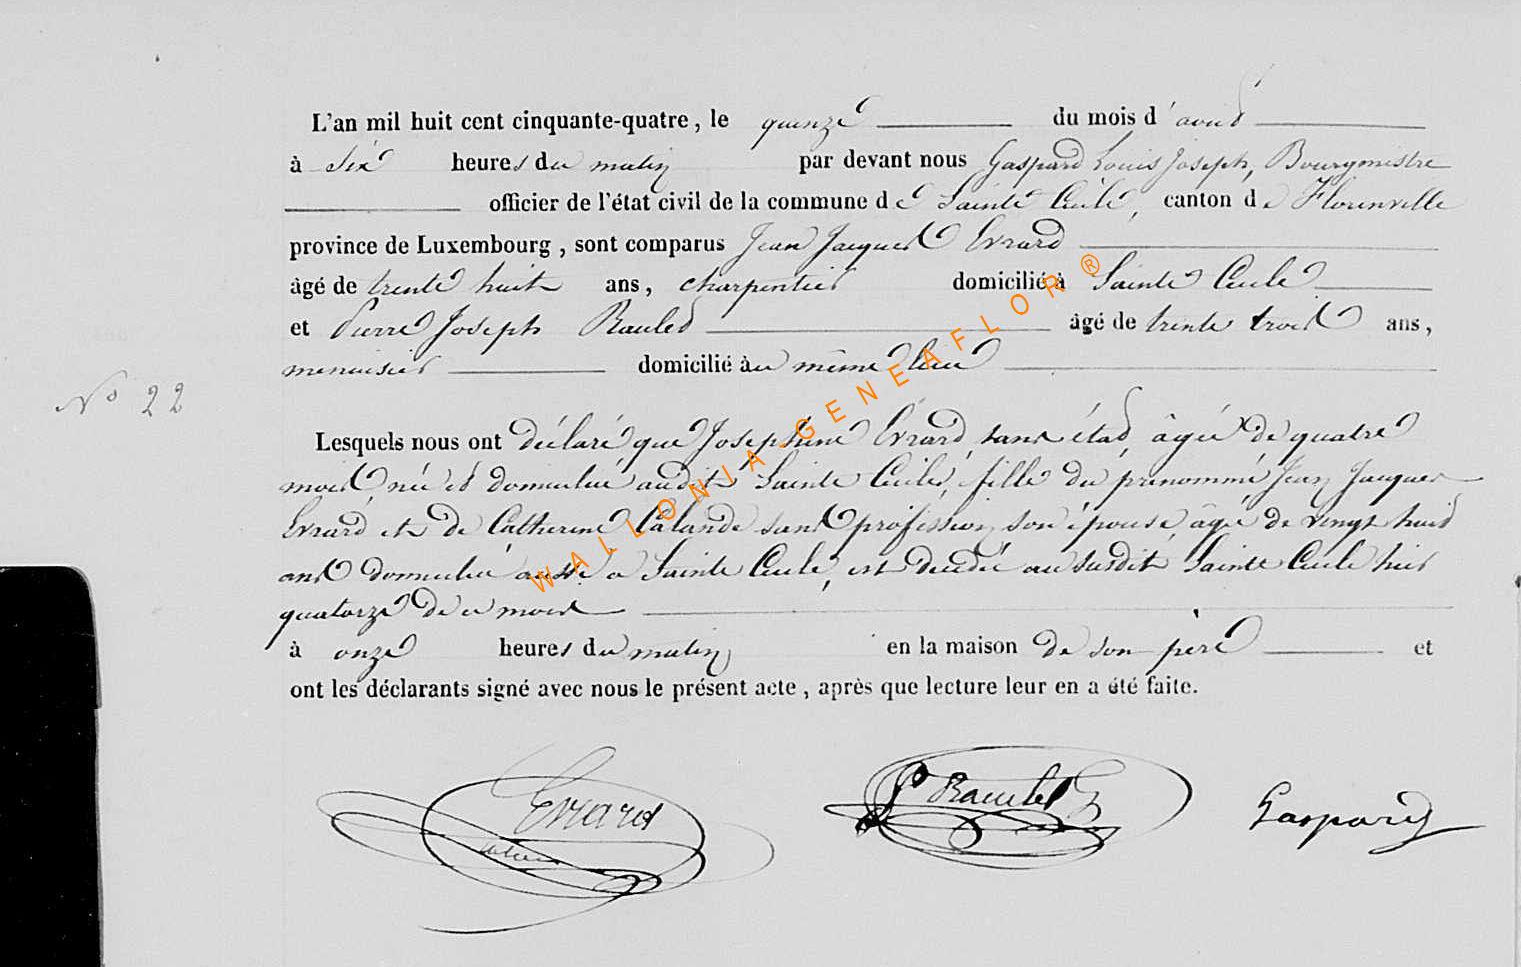 L'an mil huit cent cinquante-quatre, le quinze du mois d'avril
à six heures du matin par devant nous Gaspard Louis Joseph, Bourgmistre
officier de l'état civil de la commune de Sainte Cécile, canton de Florenville
province de Luxembourg, sont comparus Jean Jacques Evrard
âgé de trente huit ans, charpentier domicilié à Sainte Cecile
et Pierre Joseph Raulet âgé de trente trois ans,
menuisier domicilié au même lieu
N° 22
Lesquels nous ont déclaré que Joséphine Evrard, sans état, âgée de quatre
mois, née et domiciliée audit Sainte Cécile, fille du prénommé Jean Jacques
Evrard et de Catherine Lalande sans profession, son épouse, âgée de vingt huit
ans domiciliée aussi à Sainte Cecile, est décédée au susdit Sainte Cecile hier
quatorze de ce mois
à onze heures du matin en la maison de son père et
ont les déclarants signé avec nous le présent acte, après que lecture leur en a été faite.
Evrard P Raulet Gaspard
WALLONIA-GENEAFLOR®